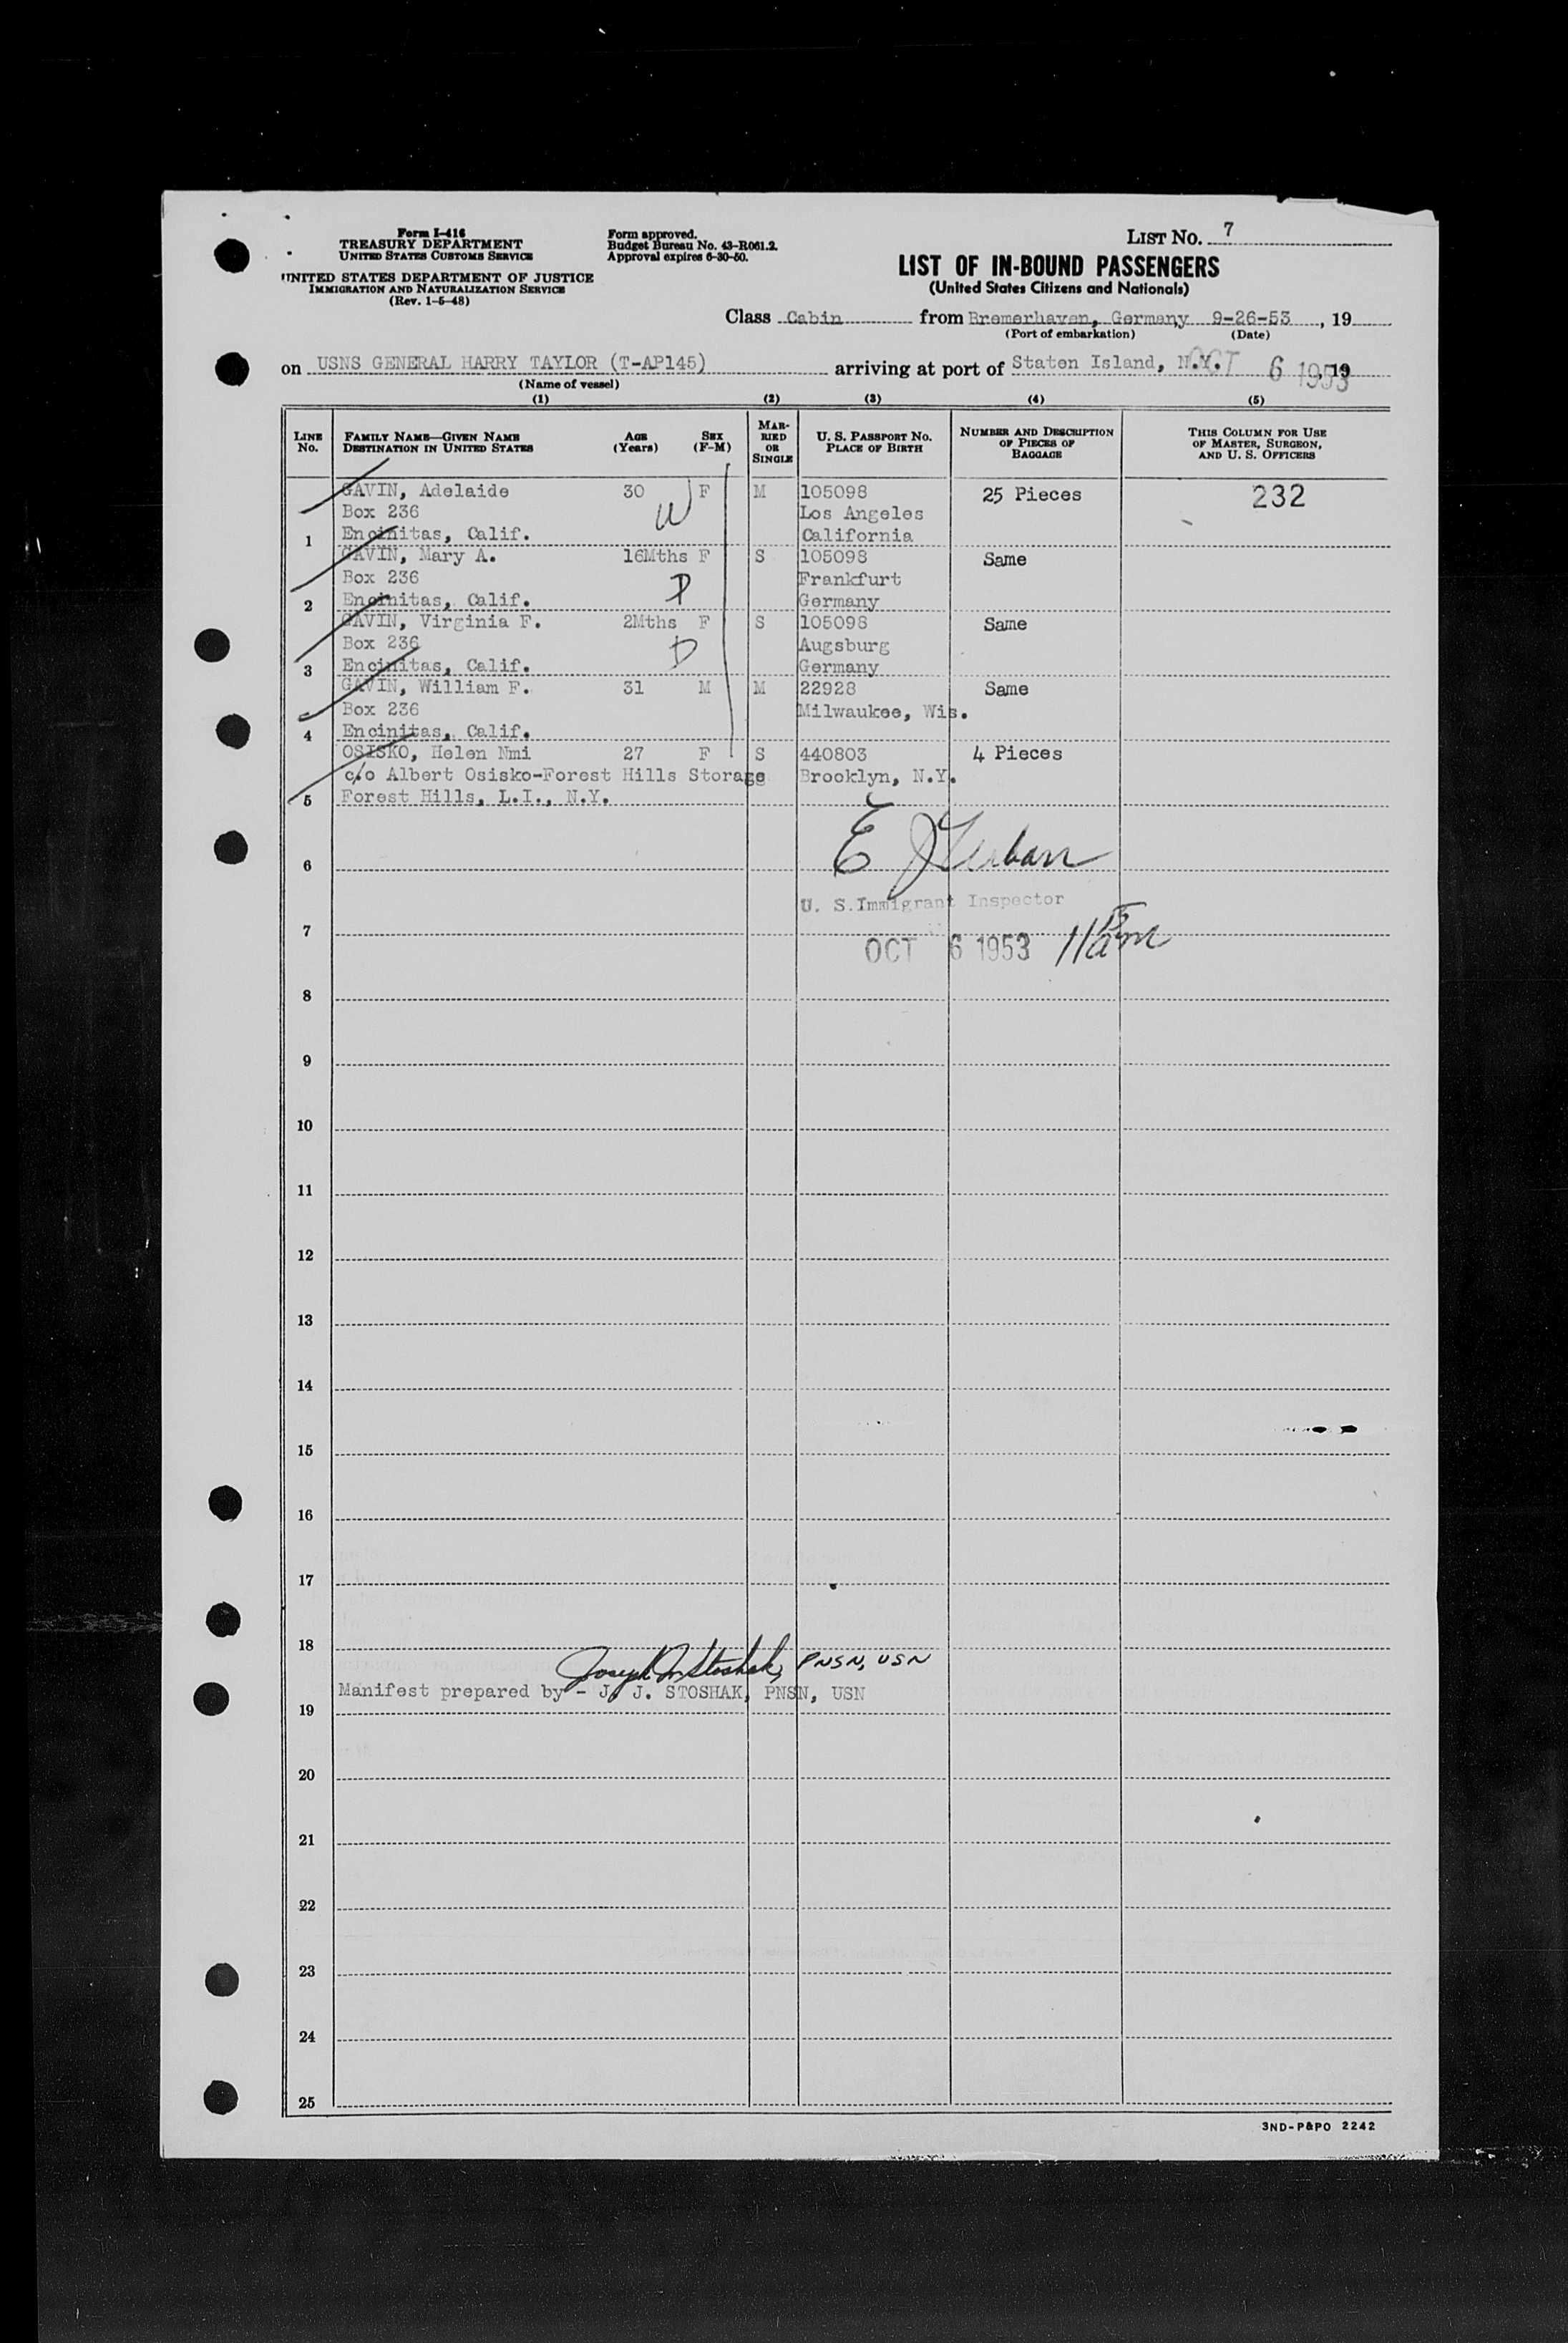 Form I-416
TREASURY DEPARTMENT
UNITED STATES CUSTOMS SERVICE
UNITED STATES DEPARTMENT OF JUSTICE
IMMIGRATION AND NATURALIZATION SERVICE
(Rev. 1-5-48)
Form approved.
Budget Bureau No. 43-R061.2.
Approval expires 6-30-50.
LIST NO. 7
LIST OF IN-BOUND PASSENGERS
(United States Citizens and Nationals)
Class Cabin from Bremerhaven, Germany 9-26-53, 19
(Port of embarkation) (Date)
on USNS GENERAL HARRY TAYLOR (T-AP145) arriving at port of Staten Island, N.Y. OCT 6 1953, 19
(Name of vessel)
(1) (2) (3) (4) (5)
LINE NO. FAMILY NAME—GIVEN NAME DESTINATION IN UNITED STATES AGE (Years) SEX (F-M) MARRIED OR SINGLE U. S. PASSPORT NO. PLACE OF BIRTH NUMBER AND DESCRIPTION OF PIECES OF BAGGAGE THIS COLUMN FOR USE OF MASTER, SURGEON, AND U. S. OFFICERS
GAVIN, Adelaide 30 F M 105098 25 Pieces 232
Box 236 W Los Angeles
1 Encinitas, Calif. California
GAVIN, Mary A. 16Mths F S 105098 Same
Box 236 D Frankfurt
2 Encinitas, Calif. Germany
GAVIN, Virginia F. 2Mths F S 105098 Same
Box 236 D Augsburg
3 Encinitas, Calif. Germany
GAVIN, William F. 31 M M 22928 Same
Box 236 Milwaukee, Wis.
4 Encinitas, Calif.
OSISKO, Helen Nmi 27 F S 440803 4 Pieces
c/o Albert Osisko-Forest Hills Storage Brooklyn, N.Y.
5 Forest Hills, L.I., N.Y.
6
U. S. Immigrant Inspector
7 OCT 6 1953
8
9
10
11
12
13
14
15
16
17
18
Joseph Stoshak, PNSN, USN
Manifest prepared by - J. J. STOSHAK, PNSN, USN
19
20
21
22
23
24
25
3ND-P&PO 2242